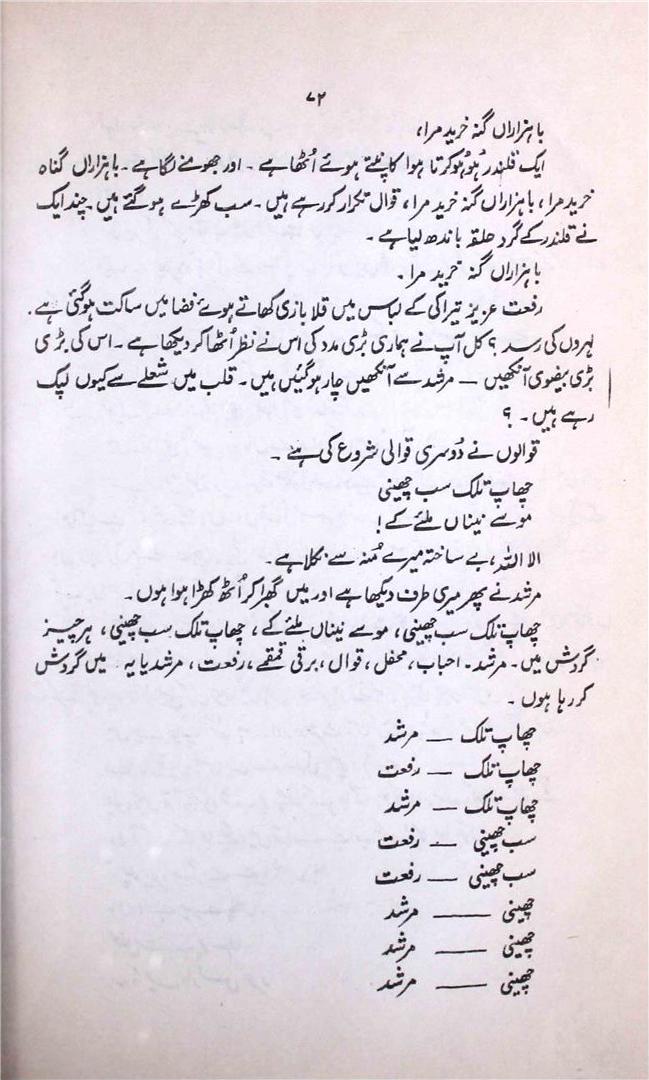 ۷۲
با ہزاراں گنہ خرید مرا،
ایک قلندر ہُو ہُو کرتا ہوا کانپتے ہوئے اُٹھا ہے ۔ اور جھومنے لگا ہے ۔ با ہزاراں گناہ
خرید مرا، با ہزاراں گنہ خرید مرا، قوال تکرار کر رہے ہیں ۔ سب کھڑے ہو گئے ہیں ۔ چند ایک
نے قلندر کے گرد حلقہ باندھ لیا ہے ۔
با ہزاراں گنہ خرید مرا ۔
رفعت عزیز تیراکی کے لباس میں قلابازی کھاتے ہوئے فضا میں ساکت ہو گئی ہے ۔
لہروں کی رسد ؟ کل آپ نے ہماری بڑی مدد کی اس نے نظر اُٹھا کر دیکھا ہے ۔ اس کی بڑی
بڑی بیضوی آنکھیں — مرشد سے آنکھیں چار ہو گئیں ہیں ۔ قلب میں شعلے سے کیوں لپک
رہے ہیں ۔ ؟
قوالوں نے دُوسری قوالی شروع کی ہے ۔
چھاپ تلک سب چھینی
موسے نیناں ملئے کے !
الا اللہ، بے ساختہ میرے مُنہ سے نکلا ہے ۔
مرشد نے پھر میری طرف دیکھا ہے اور میں گھبرا کر اُٹھ کھڑا ہوا ہوں ۔
چھاپ تلک سب چھینی، موسے نیناں ملئے کے، چھاپ تلک سب چھینی، ہر چیز
گردش میں ۔ مرشد ۔ احباب، محفل، قوال، برقی قمقمے، رفعت، مرشد یا یہ میں گردش
کر رہا ہوں ۔
چھاپ تلک — مرشد
چھاپ تلک — رفعت
چھاپ تلک — مرشد
سب چھینی — رفعت
سب چھینی — رفعت
چھینی — مرشد
چھینی — مرشد
چھینی — مرشد